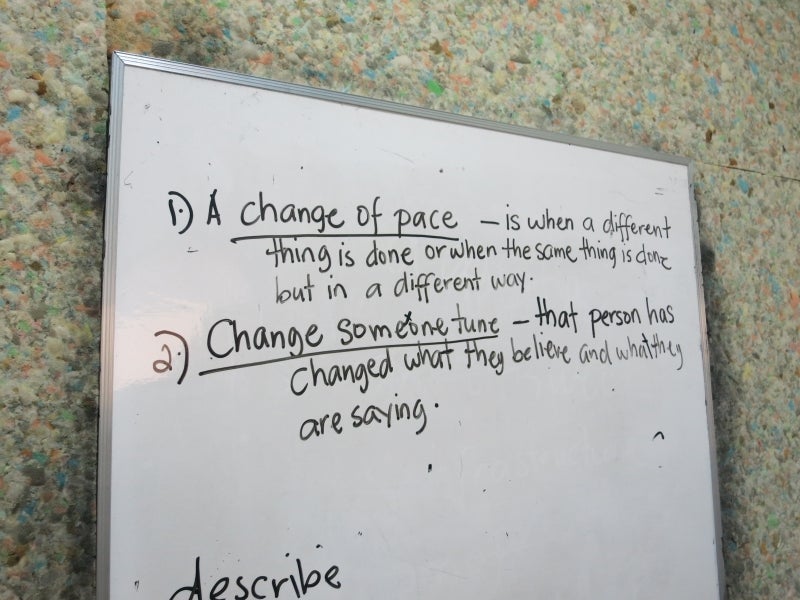 1.) A change of pace – is when a different
thing is done or when the same thing is done
but in a different way.
2.) Change someone tune – that person has
changed what they believe and what they
are saying.
describe